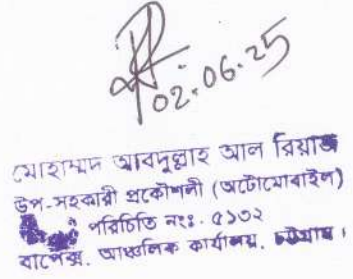 02.06.25
মোহাম্মদ আবদুল্লাহ আল রিয়াজ
উপ-সহকারী প্রকৌশলী (অটোমোবাইল)
পরিচিতি নংঃ- ৫১৩২
বাপেক্স, আঞ্চলিক কার্যালয়, চট্টগ্রাম।